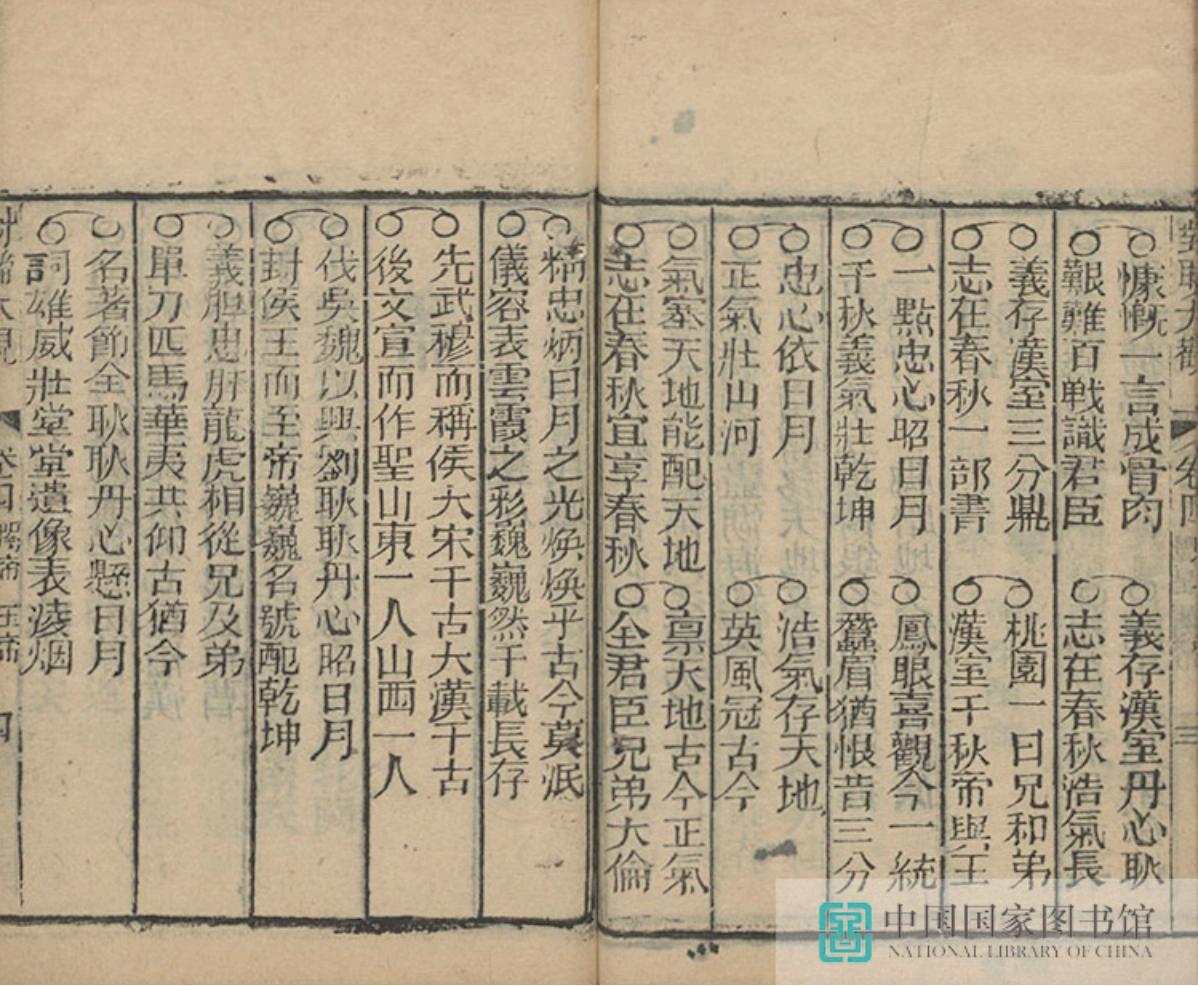 慷慨一言成骨肉
艱難百戦識君臣
義存漢室丹心耿
志在春秋浩氣長
義存漢室三分鼎
志在春秋一部書
桃園一日兄和弟
漢室千秋帝與王
一點忠心昭日月
千秋義氣壯乾坤
鳳眼喜觀今一統
蠶眉猶恨昔三分
忠心依日月
正氣壯山河
浩氣存天地
英風冠古今
氣塞天地能配天地
志在春秋宜享春秋
禀天地古今正氣
全君臣兄弟大倫
精忠炳日月之光煥煥乎古今莫泯
儀容表雲霞之彩巍巍然千載長存
先武穆而稱侯大宋千古大漢千古
後文宣而作聖山東一人山西一人
伐吳魏以興劉耿耿丹心昭日月
封侯王而至帝巍巍名號配乾坤
義胆忠肝龍虎相從兄及弟
單刀匹馬華夷共仰古猶今
名著節全耿耿丹心懸日月
詞雄威壯堂堂遺像表淩烟
卷四 關帝 五帝 四
中国国家图书馆
NATIONAL LIBRARY OF CHINA